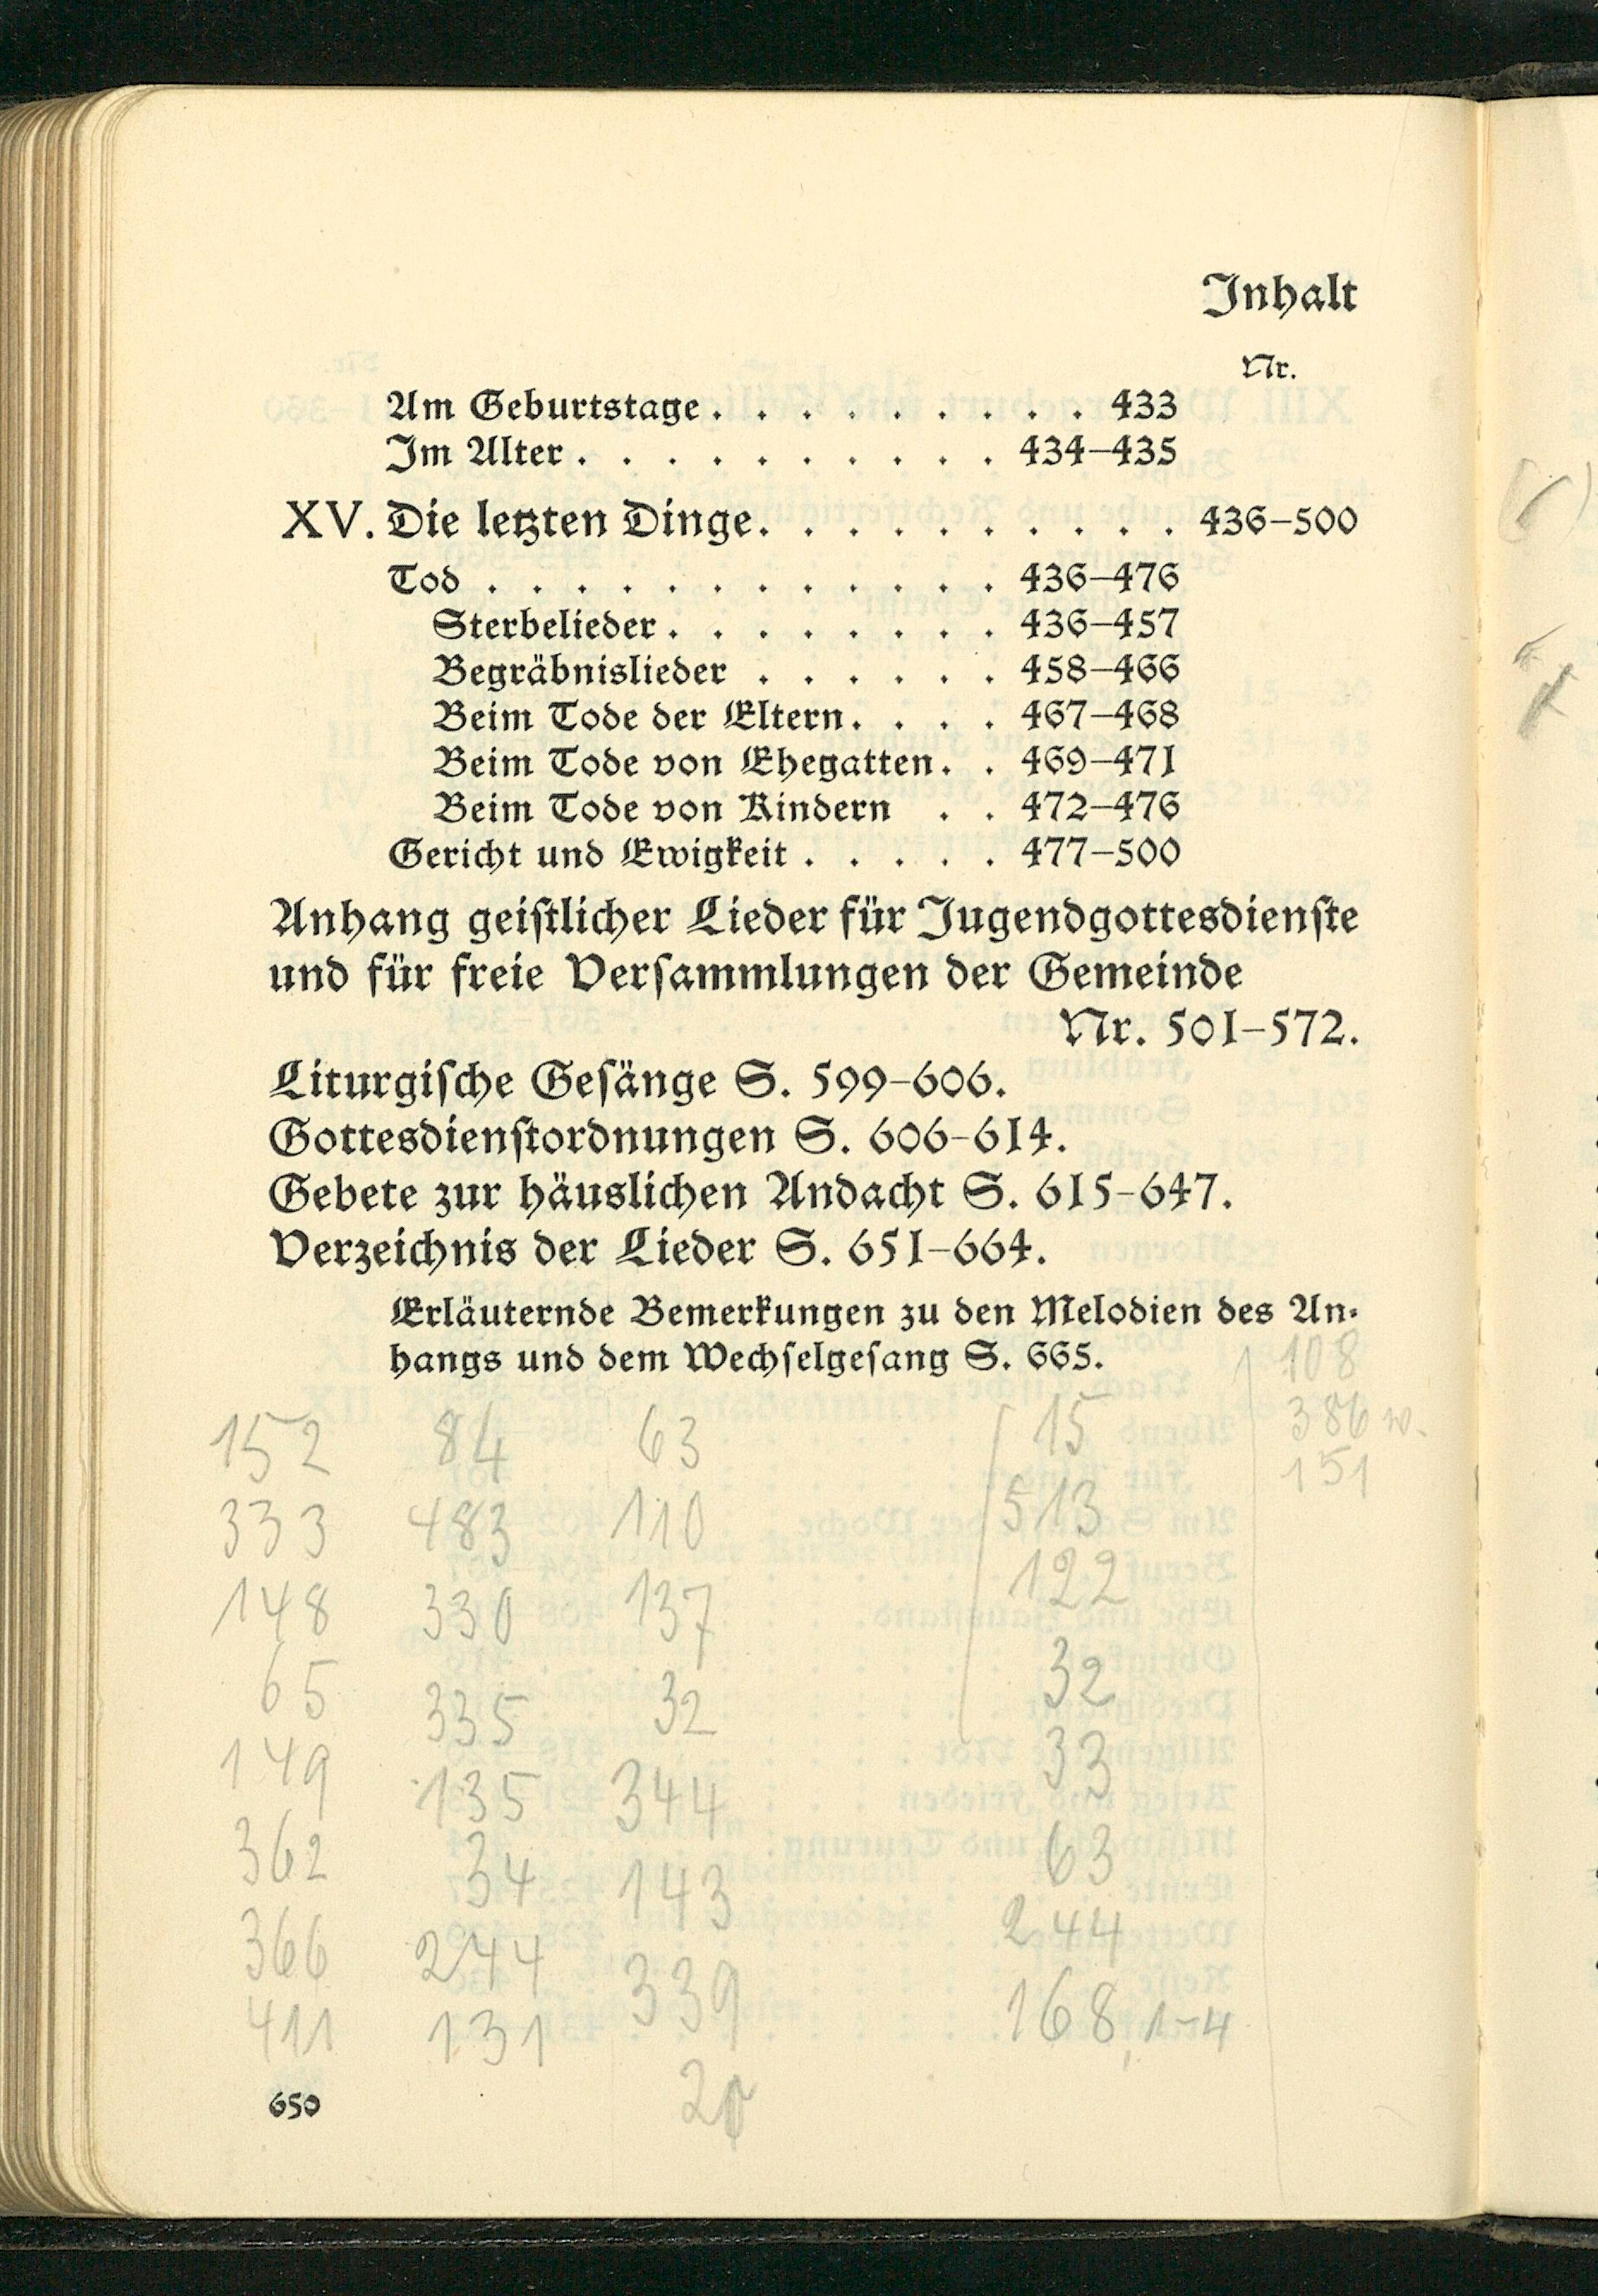 Inhalt
Nr.
Am Geburtstage . . . . . . . . . 433
Im Alter . . . . . . . . . . 434–435
XV. Die letzten Dinge . . . . . . . . . . 436–500
Tod . . . . . . . . . . . . 436–476
Sterbelieder . . . . . . . . 436–457
Begräbnislieder . . . . . . 458–466
Beim Tode der Eltern . . . . 467–468
Beim Tode von Ehegatten . . 469–471
Beim Tode von Kindern . . 472–476
Gericht und Ewigkeit . . . . . 477–500
Anhang geiſtlicher Lieder für Jugendgottesdienſte
und für freie Verſammlungen der Gemeinde
Nr. 501–572.
Liturgiſche Geſänge S. 599–606.
Gottesdienſtordnungen S. 606–614.
Gebete zur häuslichen Andacht S. 615–647.
Verzeichnis der Lieder S. 651–664.
Erläuternde Bemerkungen zu den Melodien des An-
hangs und dem Wechſelgeſang S. 665.
152
333
148
65
149
362
366
411
84
483
330
335
135
34
244
131
63
110
137
32
344
143
339
15
513
122
32
33
63
244
168, 1–4
108
386 w.
151
650